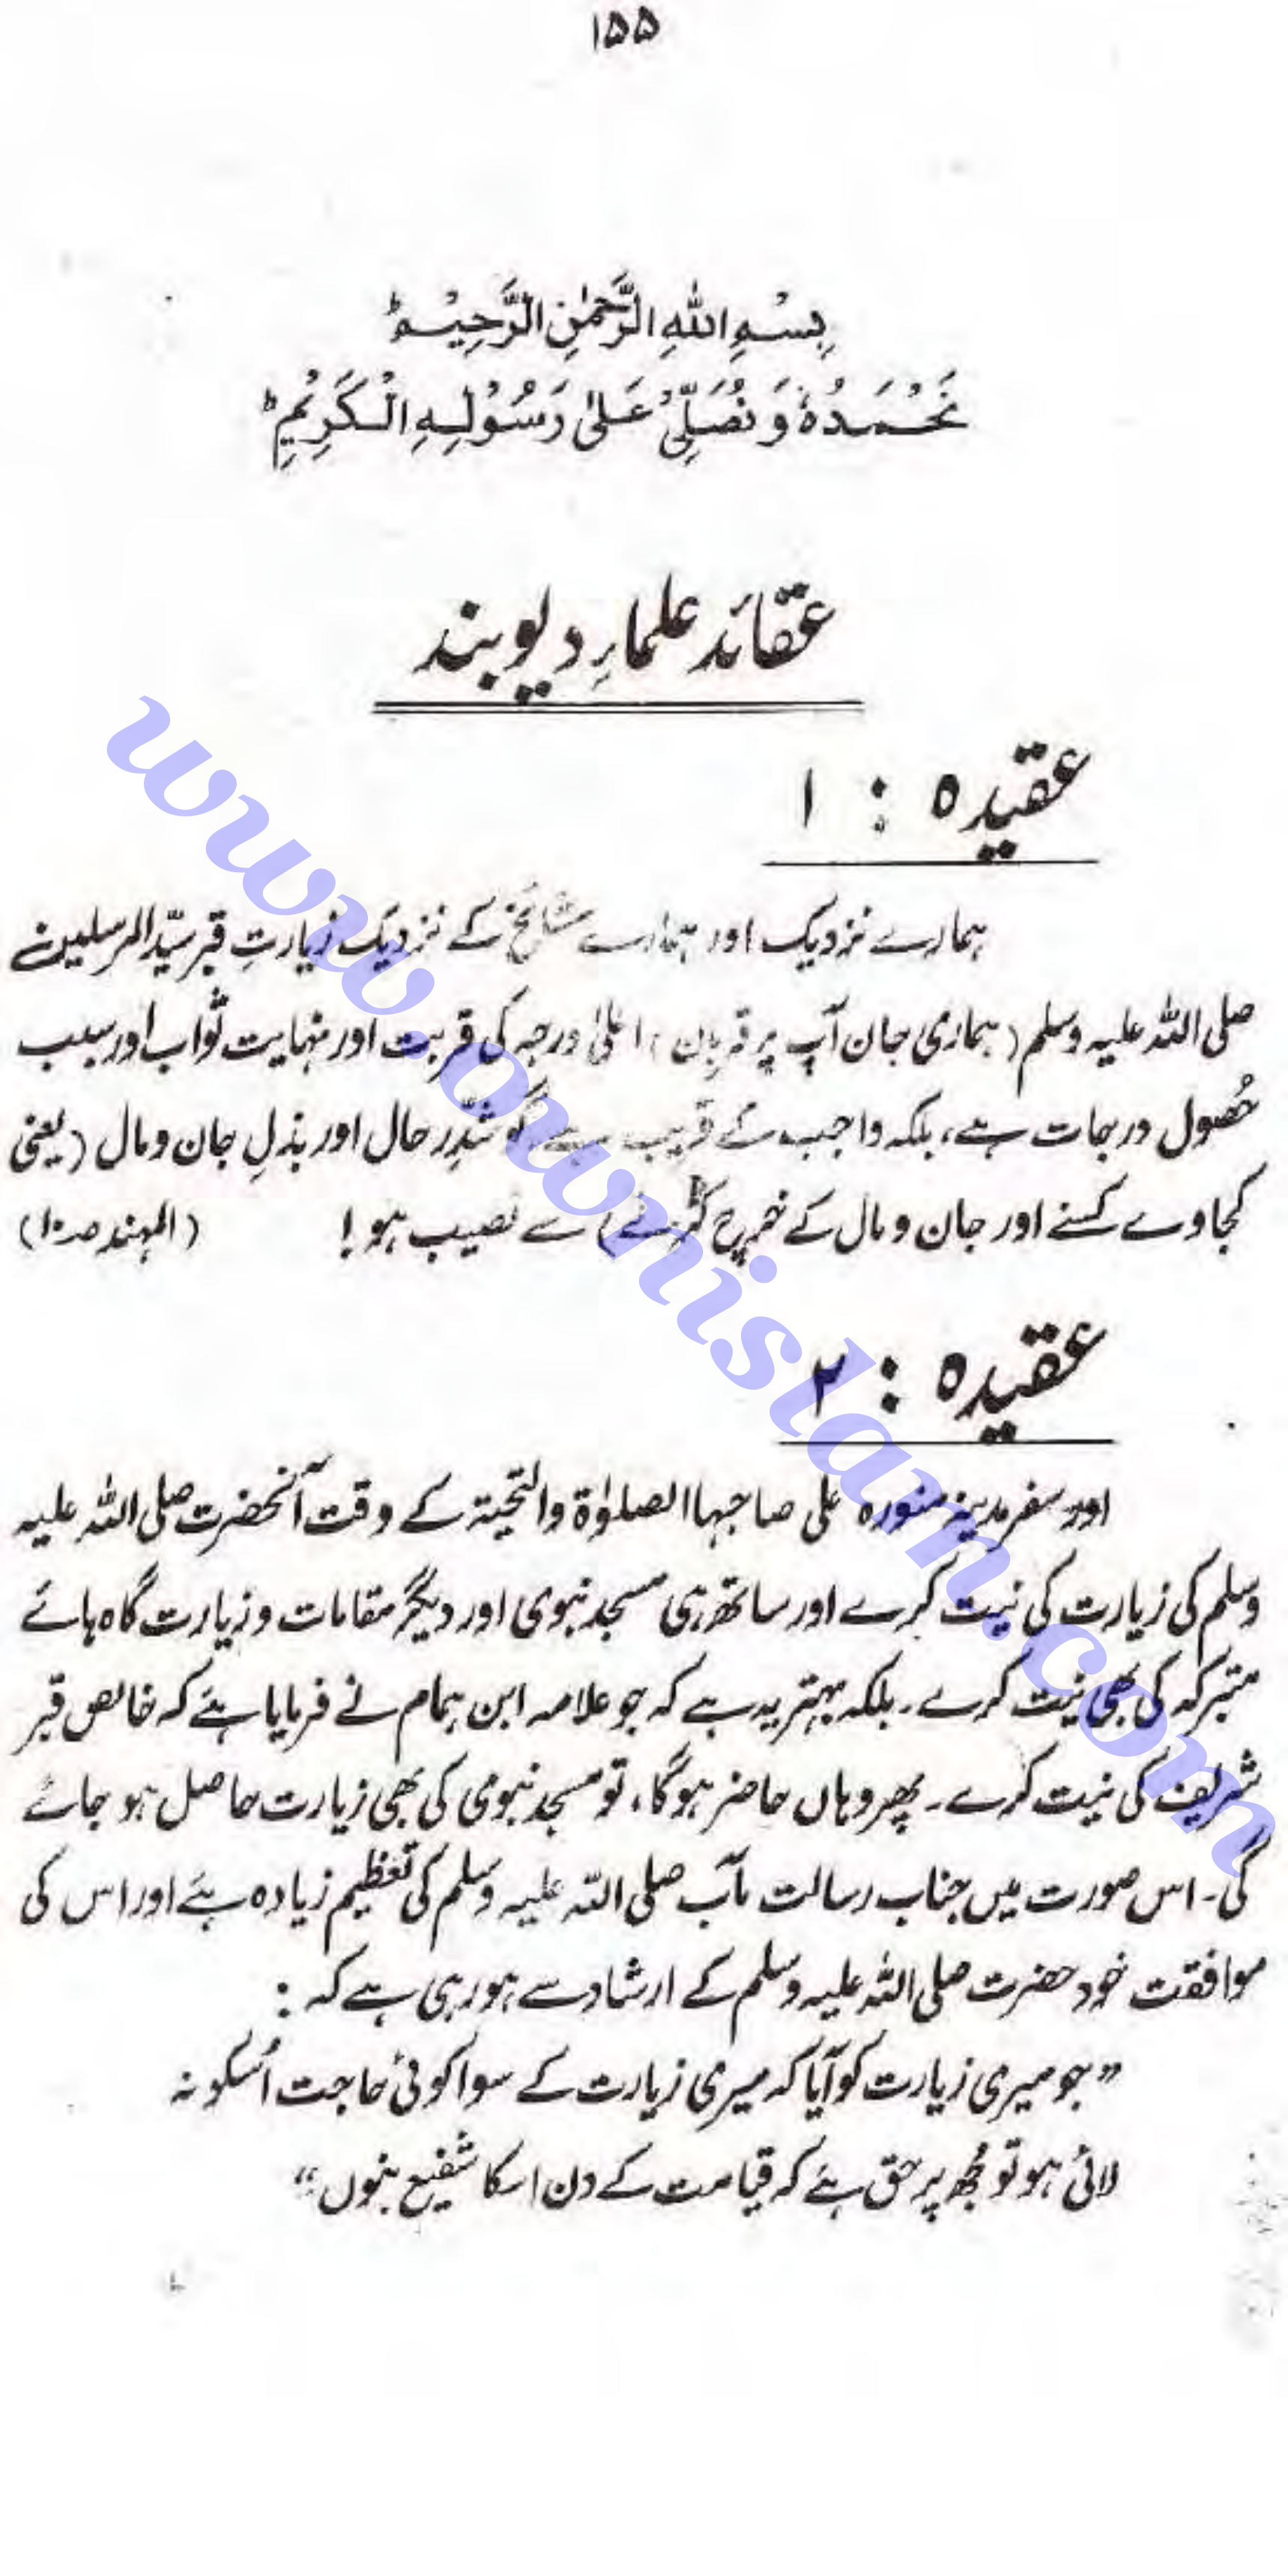 ۱۵۵
بِسْمِ اللهِ الرَّحْمٰنِ الرَّحِيْمِ ؕ
نَحْمَدُهٗ وَ نُصَلِّیْ عَلٰی رَسُوْلِهِ الْكَرِيْمِ ؕ
عقائد علمارِ دیوبند
عقیدہ : ۱
ہمارے نزدیک اور ہمارے مشائخ کے نزدیک زیارتِ قبر سیّد المرسلین
صلی اللہ علیہ وسلم ( ہماری جان آپ پر قربان ) اعلیٰ درجہ کی قربت اور نہایت ثواب اور سبب
حُصول درجات ہے، بلکہ واجب کے قریب ہے گو شدِّ رحال اور بذلِ جان و مال ( یعنی
کجاوے کسنے اور جان و مال کے خرچ کرنے ) سے نصیب ہو ! ( المہند صـ ۱۰ )
عقیدہ : ۲
اور سفر مدینہ منورہ علی صاحبہا الصلوٰۃ والتحیۃ کے وقت آنحضرت صلی اللہ علیہ
وسلم کی زیارت کی نیت کرے اور ساتھ ہی مسجد نبوی اور دیگر مقامات و زیارت گاہ ہائے
متبرکہ کی بھی نیت کرے۔ بلکہ بہتر یہ ہے کہ جو علامہ ابن ہمام نے فرمایا ہے کہ خالص قبر
شریف کی نیت کرے۔ پھر وہاں حاضر ہوگا، تو مسجد نبوی کی بھی زیارت حاصل ہو جائے
گی۔ اس صورت میں جناب رسالت مآب صلی اللہ علیہ وسلم کی تعظیم زیادہ ہے اور اس کی
موافقت خود حضرت صلی اللہ علیہ وسلم کے ارشاد سے ہو رہی ہے کہ :
” جو میری زیارت کو آیا کہ میری زیارت کے سوا کوئی حاجت اُسکو نہ
لائی ہو تو مُجھ پر حق ہے کہ قیامت کے دن اسکا شفیع بنوں “
www.ownislam.com